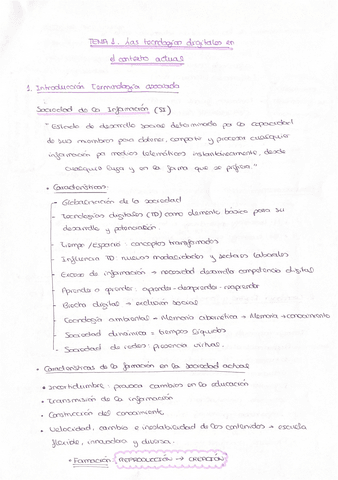 TEMA 1. Las tecnologías digitales en
el contexto actual
1. Introducción. Terminología asociada
Sociedad de la Información (SI)
"Estado de desarrollo social determinado por la capacidad
de sus miembros para obtener, compartir y procesar cualquier
información por medios telemáticos instantáneamente, desde
cualquier lugar y en la forma que se prefiera."
• Características:
- Globalización de la sociedad
- Tecnologías digitales (TD) como elemento básico para su
desarrollo y potenciación
- Tiempo/Espacio: conceptos transformados
- Influencia TD nuevas modalidades y sectores laborales
- Exceso de información → necesidad desarrollo competencia digital
- Aprender a aprender: aprender-desaprender-reaprender
- Brecha digital → exclusión social
- Tecnología ambiental → Memoria cibernética → Memoria → conocimiento
- Sociedad dinámica = tiempos líquidos
- Sociedad de redes: presencia virtual.
• Características de la formación en la sociedad actual
* Incertidumbre: provoca cambios en la educación
* Transmisión de la información
* Construcción del conocimiento
* Velocidad, cambio e inestabilidad de los contenidos → escuela
flexible, innovadora y diversa.
* Formación: REPRODUCCIÓN → CREACIÓN